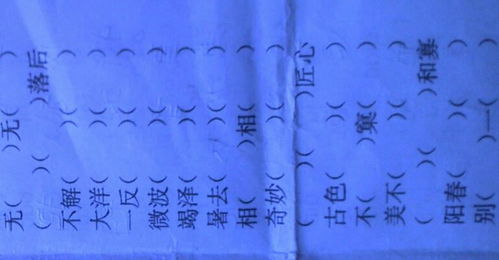 无( )无( )
( )( )落后
不解( )( )
大洋( )( )
一反( )( )
微波( )( )
竭泽( )( )
暑去( )( )
相( )相( )
奇妙( )( )
( )( )匠心
古色( )( )
不( )窠( )
美不( )( )
( )( )和寡
阳春( )( )
别( )一( )